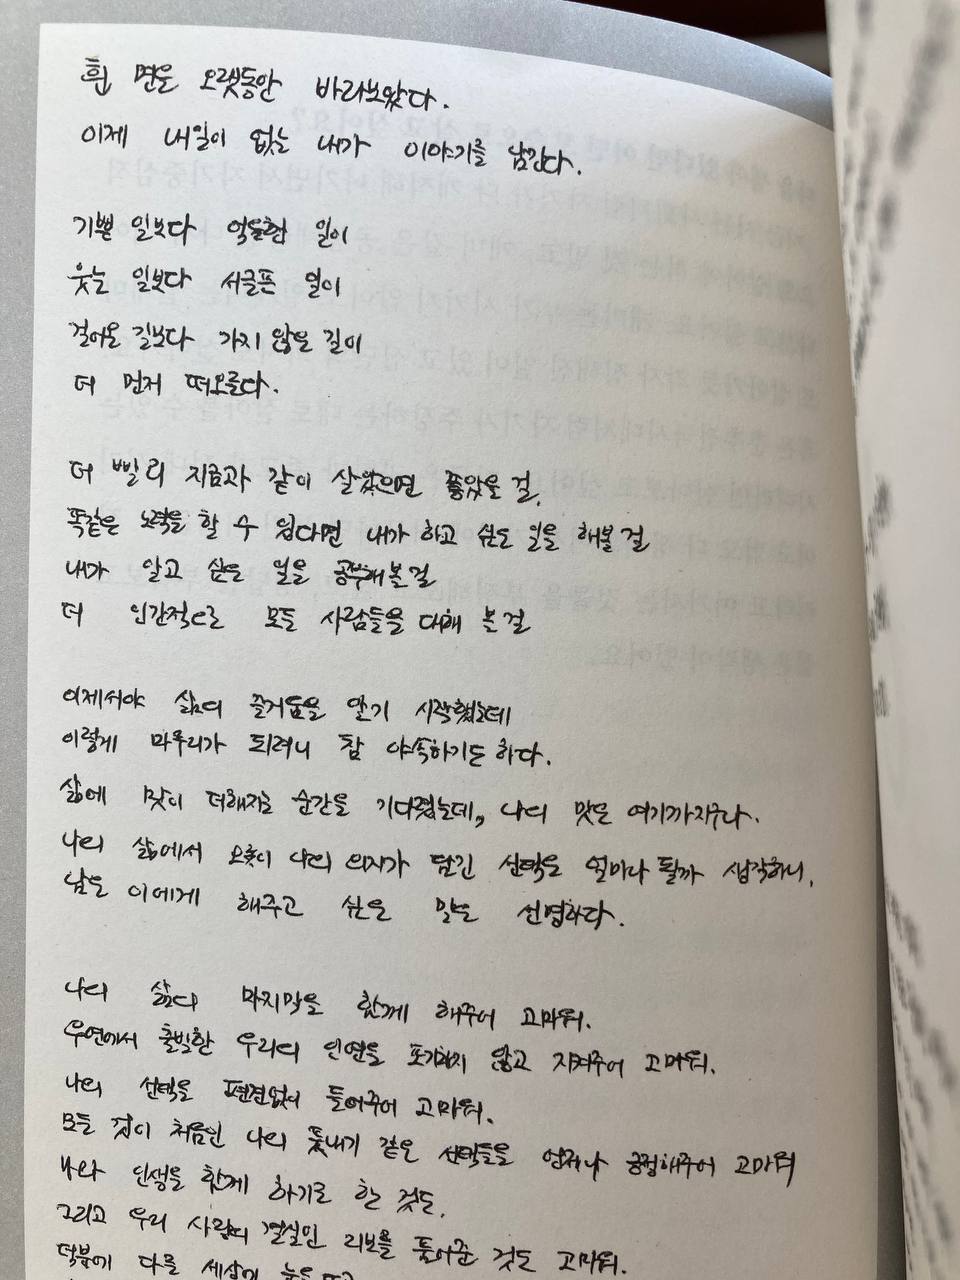 흰 면을 오랫동안 바라보았다.
이제 내일이 없는 내가 이야기를 남긴다.
기쁜 일보다 억울한 일이
웃는 일보다 서글픈 일이
걸어온 길보다 가지 않은 길이
더 먼저 떠오른다.
더 빨리 지금과 같이 살았으면 좋았을 걸,
똑같은 노력을 할 수 있다면 내가 하고 싶은 일을 해볼 걸
내가 알고 싶은 일을 공부해 볼 걸
더 인간적으로 모든 사람들을 대해 볼 걸
이제서야 삶의 즐거움을 알기 시작했는데
이렇게 마무리가 되려니 참 야속하기도 하다.
삶에 맛이 더해지는 순간을 기다렸는데, 나의 맛은 여기까지구나.
나의 삶에서 오롯이 나의 의지가 담긴 선택은 얼마나 될까 생각하니,
남은 이에게 해주고 싶은 말은 선명하다.
나의 삶의 마지막을 함께 해주어 고마워.
우연에서 출발한 우리의 인연을 포기하지 않고 지켜주어 고마워.
나의 선택을 편견없이 들어주어 고마워.
모든 것이 처음인 나의 풋내기 같은 선택들을 언제나 긍정해주어 고마워
나와 인생을 함께 하기로 한 것도,
그리고 우리 사랑의 결실인 리브를 품어준 것도 고마워.
덕분에 다른 세상에 눈을